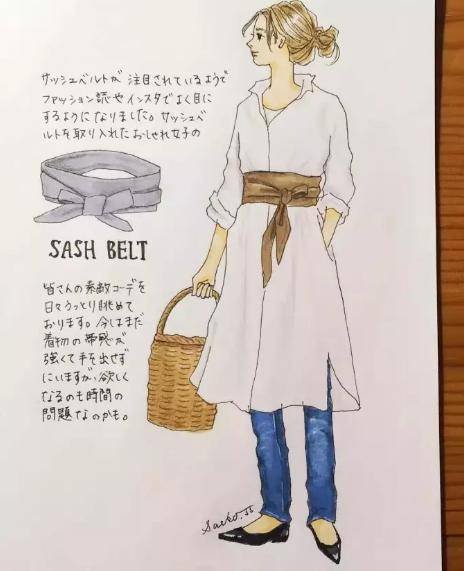 サッシュベルトが注目されているようで
ファッション誌やインスタでよく目に
するようになりました。サッシュベ
ルトを取り入れたおしゃれ女子の
SASH BELT
皆さんの素敵コーデを
日々うっとり眺めて
おります。今はまだ
着物の帯感が
強くて手を出せず
にいますが、欲しく
なるのも時間の
問題なのかも。
Saeko.